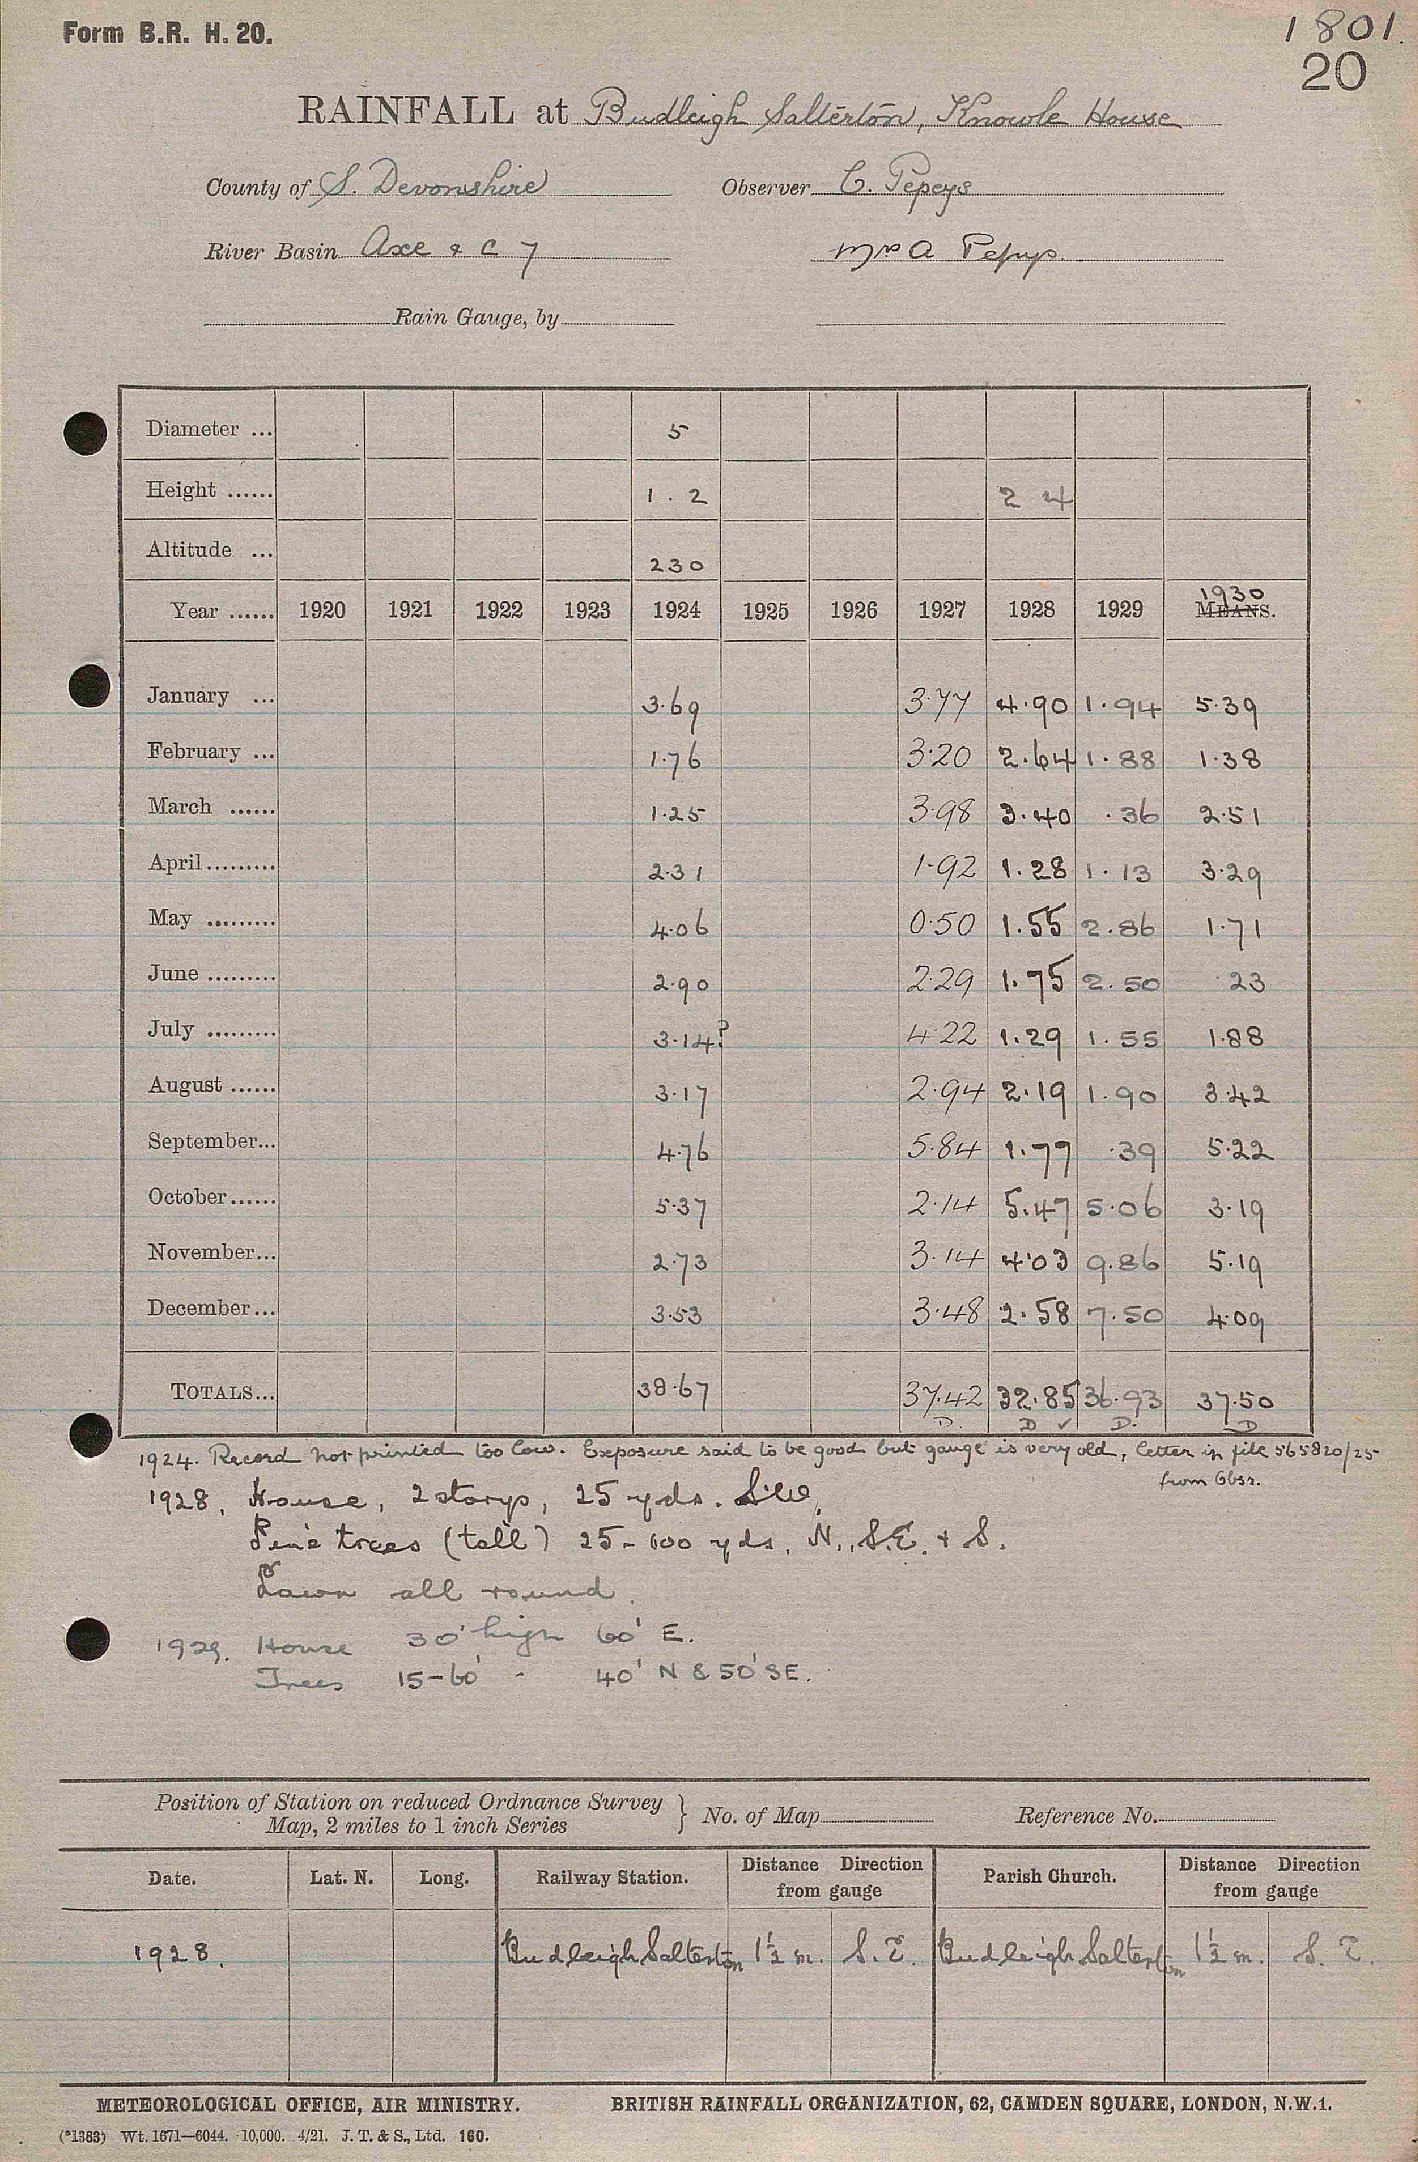 Form B.R. H. 20.
1801.
20
RAINFALL at Budleigh Salterton, Knowle House
County of S. Devonshire Observer C. Pepeys
River Basin Axe & C 7 Mrs A Pepys.
Rain Gauge, by
Diameter ... 5
Height ...... 1 . 2 2 4
Altitude ... 230
Year ...... 1920 1921 1922 1923 1924 1925 1926 1927 1928 1929 MEANS. 1930
January ... 3.69 3.77 4.90 1.94 5.39
February ... 1.76 3.20 2.64 1.88 1.38
March ...... 1.25 3.98 3.40 .36 2.51
April ......... 2.31 1.92 1.28 1.13 3.29
May ......... 4.06 0.50 1.55 2.86 1.71
June ......... 2.90 2.29 1.75 2.50 .23
July ......... 3.14? 4.22 1.29 1.55 1.88
August ...... 3.17 2.94 2.19 1.90 3.42
September... 4.76 5.84 1.77 .39 5.22
October...... 5.37 2.14 5.47 5.06 3.19
November... 2.73 3.14 4.03 9.86 5.19
December... 3.53 3.48 2.58 7.50 4.09
TOTALS... 38.67 37.42 32.85 36.93 37.50
D. D ✓ D. D
1924. Record not printed too low. Exposure said to be good but gauge is very old, letter in file 565820/25
from Obsr.
1928, House, 2 storys, 25 yds. S.W.
Pine trees (tall) 25-100 yds, N., S.E. & S.
Lawn all round.
1929. House 30' high 60' E.
Trees 15-60' - 40' N & 50' SE.
Position of Station on reduced Ordnance Survey
Map, 2 miles to 1 inch Series } No. of Map Reference No.
Date. Lat. N. Long. Railway Station. Distance Direction from gauge Parish Church. Distance Direction from gauge
1928. Budleigh Salterton 1½ m. S.E. Budleigh Salterton 1½ m. S.E.
METEOROLOGICAL OFFICE, AIR MINISTRY. BRITISH RAINFALL ORGANIZATION, 62, CAMDEN SQUARE, LONDON, N.W.1.
(*1383) Wt. 1671—6044. 10,000. 4/21. J. T. & S., Ltd. 160.